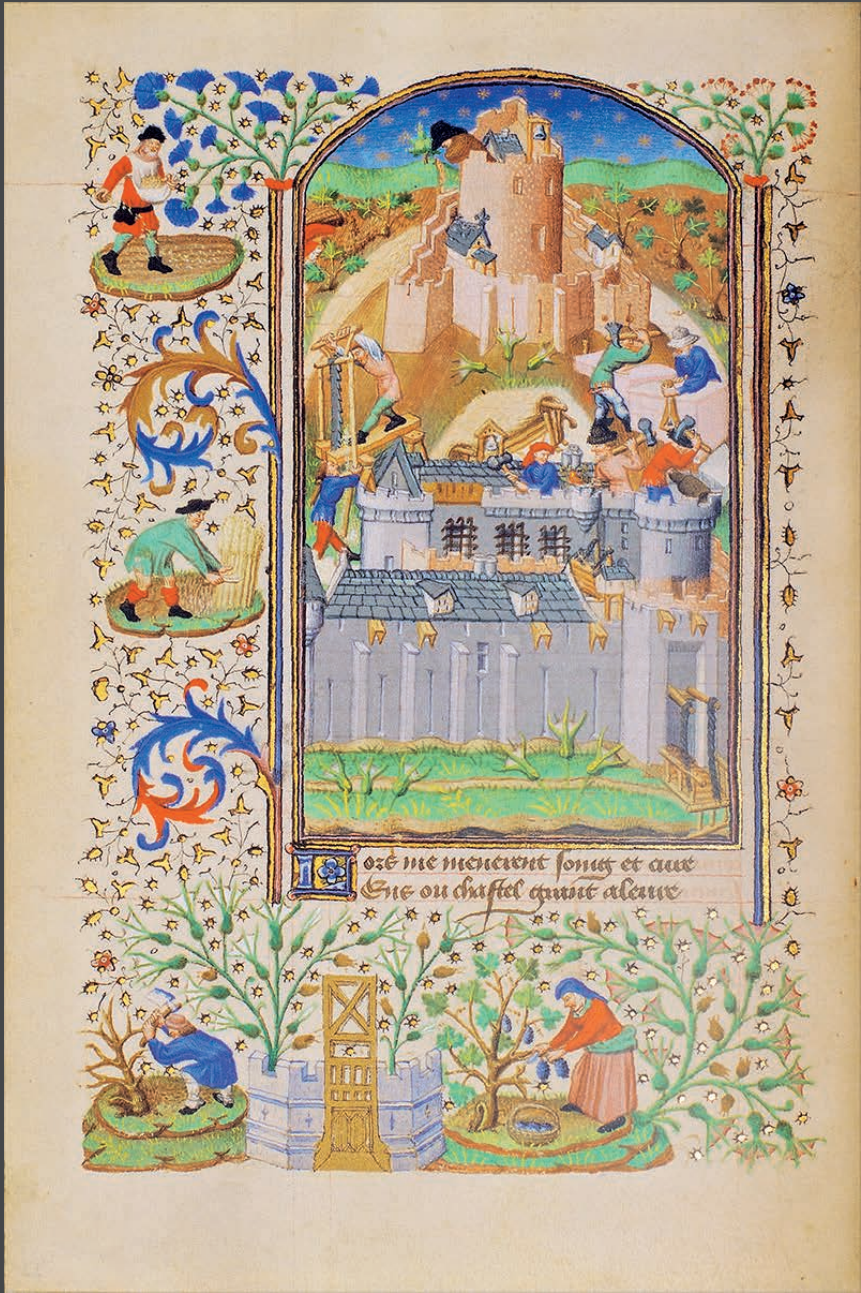 Lors me menerent soing et cure
Sus ou chastel grant aleure